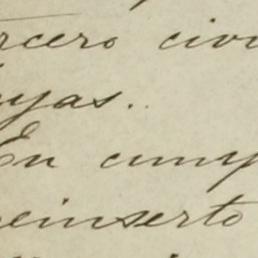 rcero civi
uyas.
En cump
reinserto